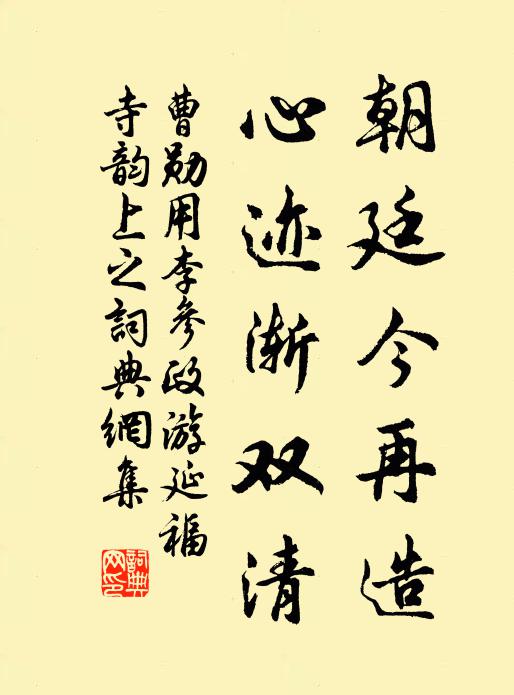 朝廷今再造
心迹渐双清
曹勋用李参政游延福
寺韵上之詞典網集
詞典网印